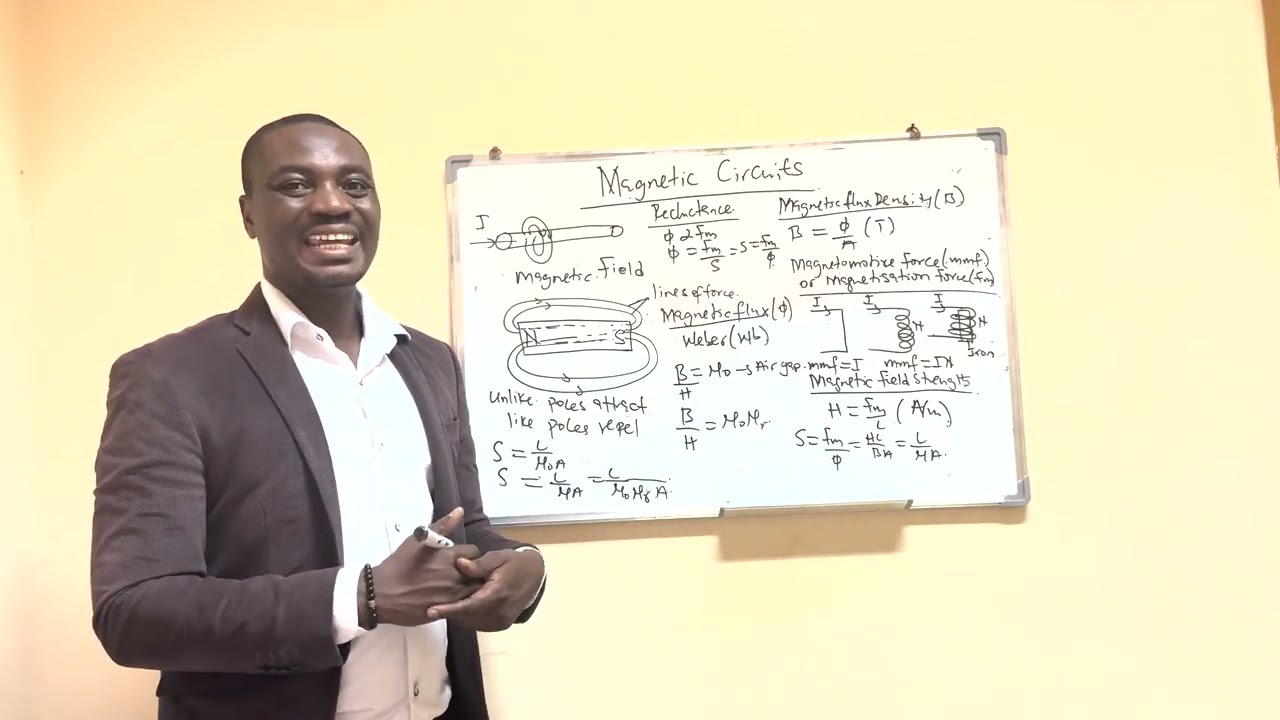 Magnetic Circuits
I
Magnetic Field
N S
Unlike poles attract
like poles repel
S = L/μ₀A
S = L/μA = L/μ₀μᵣA
Reluctance
φ α fm
φ = fm/S = S = fm/φ
lines of force
Magnetic flux (φ)
Weber (Wb)
B/H = μ₀ → Air gap
B/H = μ₀μᵣ
Magnetic flux Density (B)
B = φ/A (T)
Magnetomotive force (mmf)
or Magnetisation force (fm)
I I I
N N
Iron
mmf = I mmf = IN
Magnetic field strength
H = fm/L (A/m)
S = fm/φ = HL/BA = L/μA